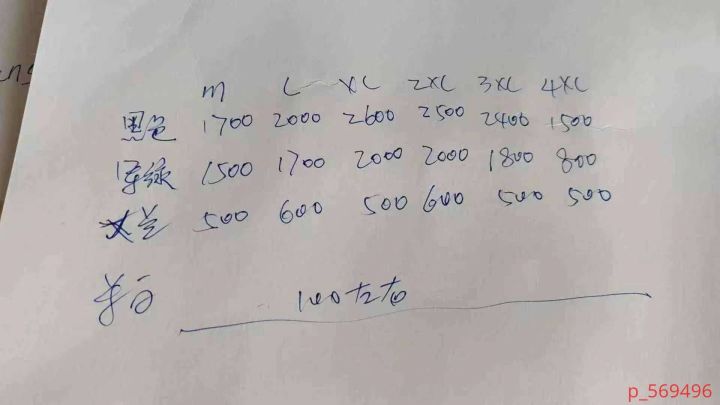 M L XL 2XL 3XL 4XL
黑色 1700 2000 2600 2500 2400 1500
军绿 1500 1700 2000 2000 1800 800
兰 500 600 500 600 500 500
100左右
p_569496